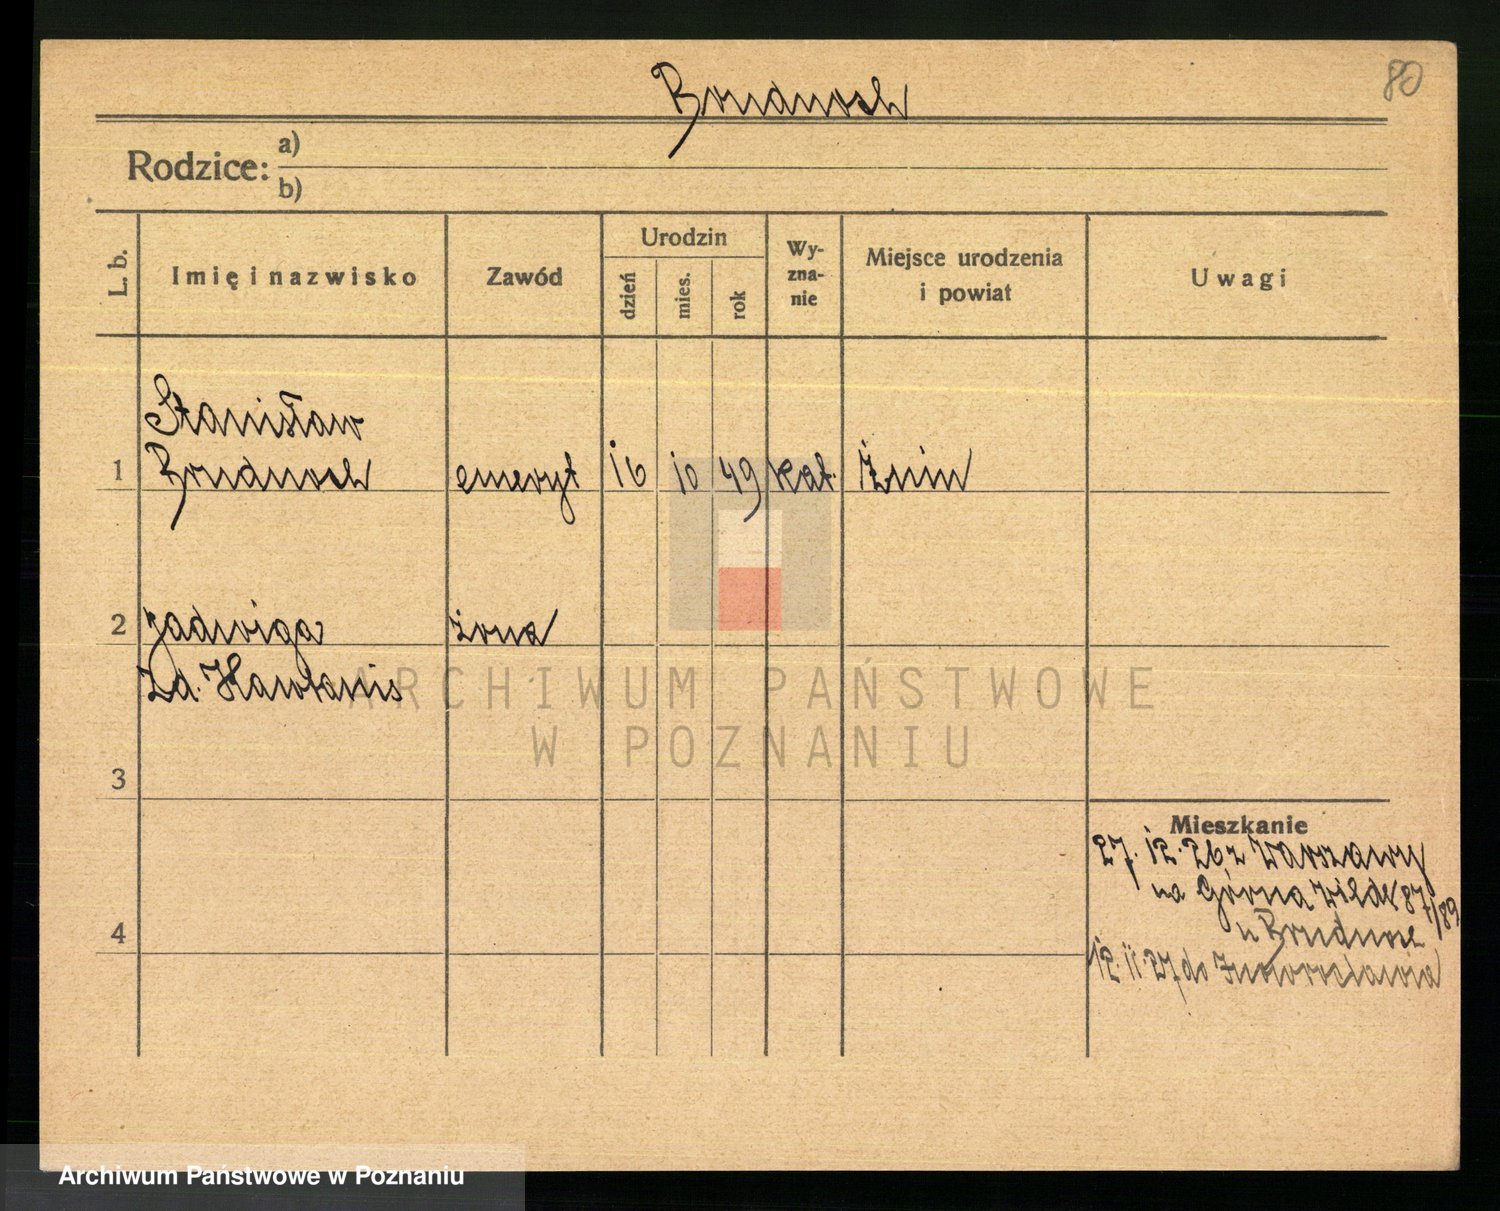 80
Brudnoch
Rodzice:
a)
b)
L. b.
Imię i nazwisko
Zawód
Urodzin
dzień
mies.
rok
Wy-
zna-
nie
Miejsce urodzenia
i powiat
Uwagi
Stanisław
1 Brudnoch emeryt 16 10 49 kat. Żnin
2 Jadwiga żona
zd.
3
4
Mieszkanie
27. 12. 26 z Warszawy
na Górna Wilda 87/89
u Brudnoch
12. 11. 27 do Inowrocławia
ARCHIWUM PAŃSTWOWE
W POZNANIU
Archiwum Państwowe w Poznaniu